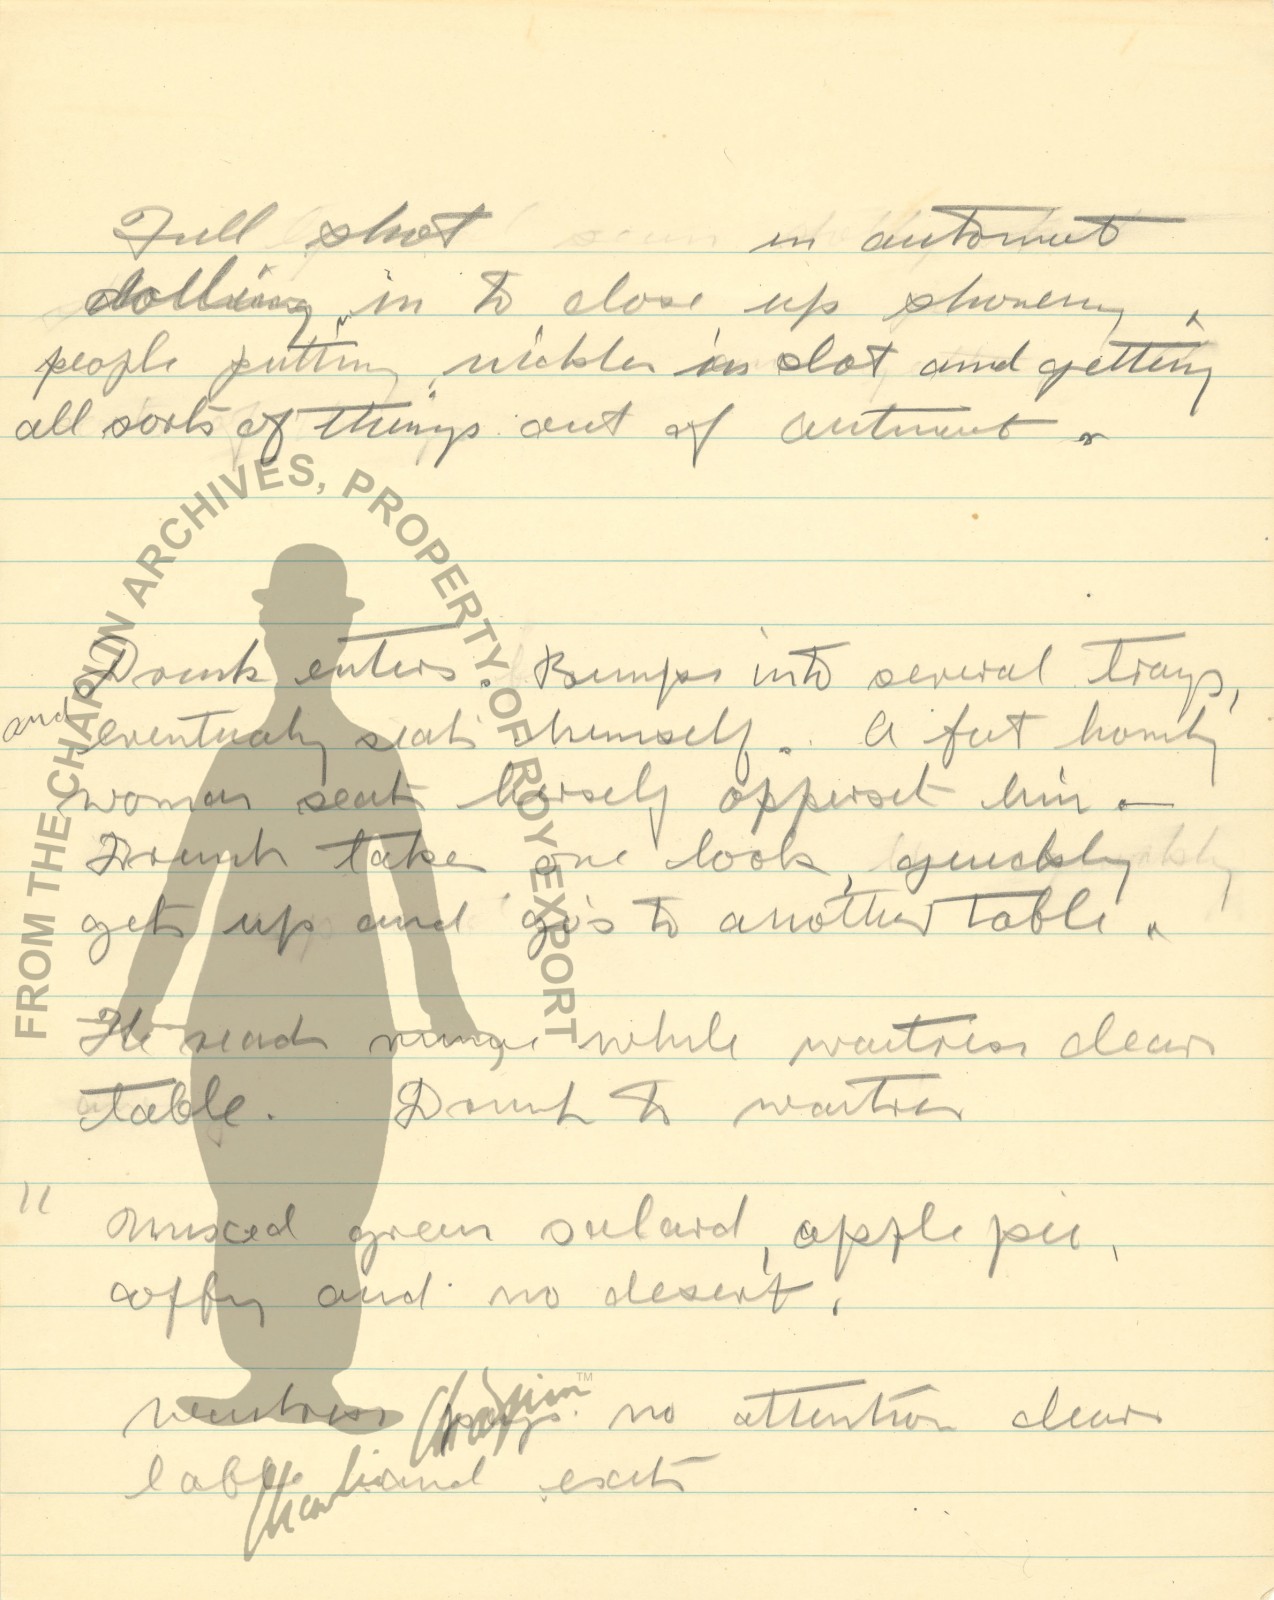 Full shot in automat
dolling in to close up showeng
people putting nickles in slot and getting
all sorts of things out of autmat.
Drunk enters. Bumps into several trays,
and eventualy seats himself. A fat homly
woman seats herself opperset him —
Drunk take one look, quickly
gets up and gos to another table.
He reads menue while waitress clears
table. Drunk to waitress
" Mixed green salard, apple pie,
coffey and no desert.
waitress pays no attention clears
table and exits
FROM THE CHAPLIN ARCHIVES, PROPERTY OF ROY EXPORT
Charlie Chaplin™